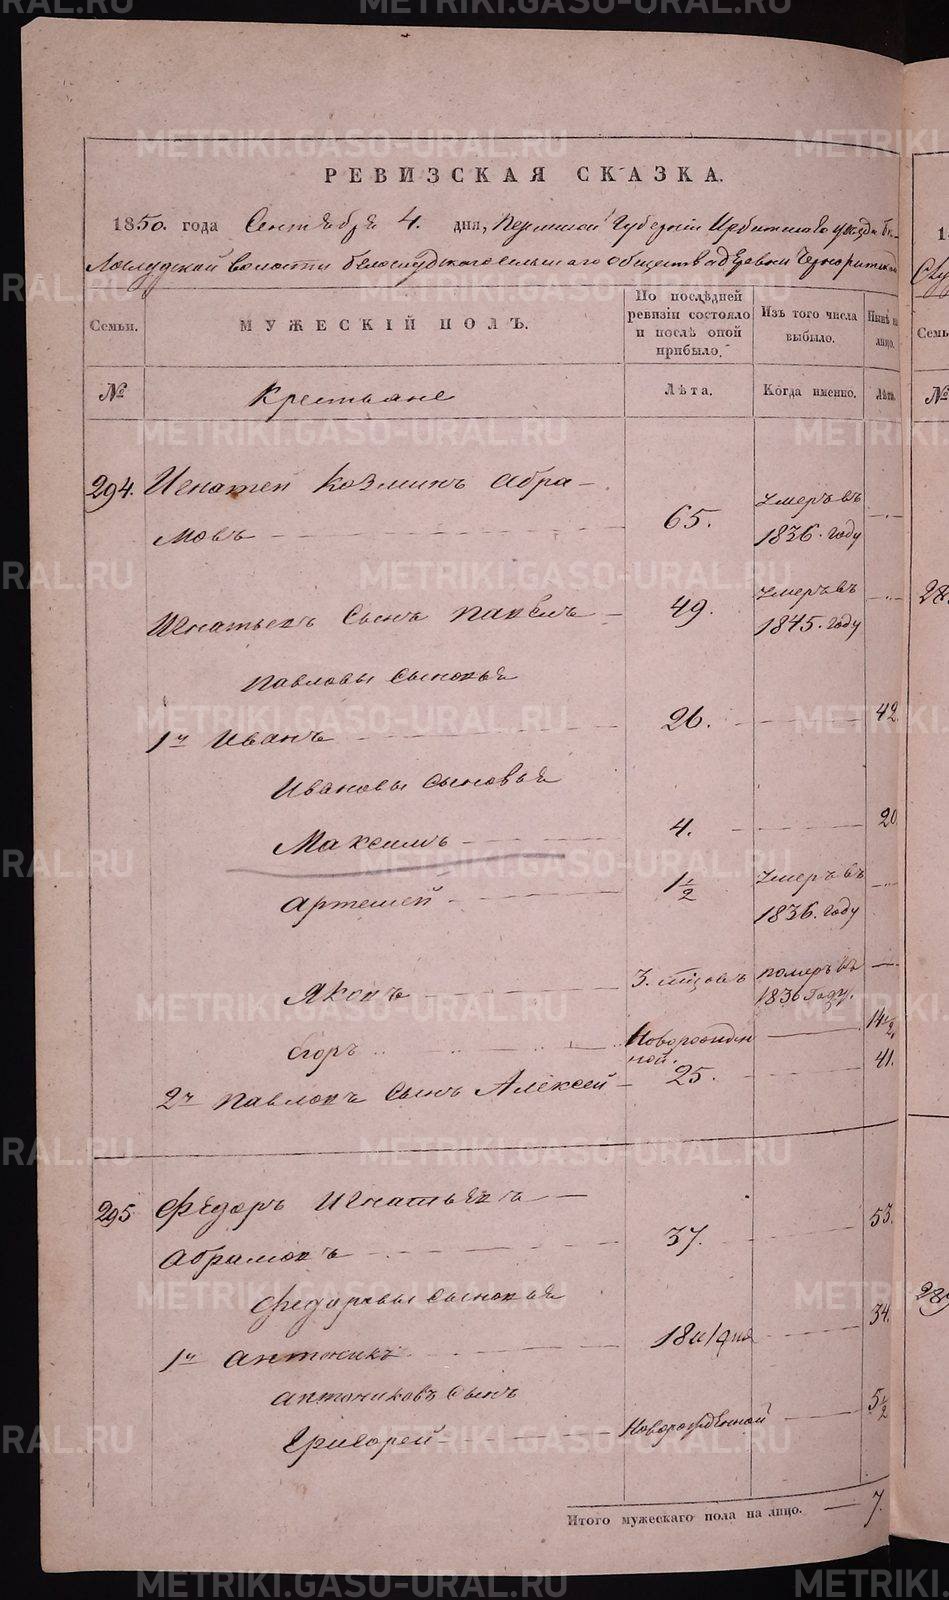 РЕВИЗСКАЯ СКАЗКА.
1850. года Сентября 4. дня, Пермской Губернии Ирбитского уезда Бе-
лослудской волости белослудского сельского общества деревни
Семьи.
МУЖЕСКІЙ ПОЛЪ.
По послѣдней ревизіи состояло и послѣ оной прибыло.
Изъ того числа выбыло.
Нынѣ на лицо.
№
Крестьяне
Лѣта.
Когда именно.
Лѣта.
294. Игнатей Козминъ Абра-
мовъ 65. Умеръ въ 1836. году
Игнатьевъ Сынъ Павелъ 49. Умеръ въ 1845. году
Павловы Сыновья
1й Иванъ 26. 42.
Ивановы Сыновья
Максимъ 4. 20.
Артемей 1½ Умеръ въ 1836. году
Яковъ 3. померъ въ 1836 году.
Егоръ Новорожден ной. 14½
2й Павловъ Сынъ Алексей 25. 41.
295 Федоръ Игнатьевъ
Абрамовъ 37. 53.
Федоровы Сыновья
1й Антоникъ 34.
Антониковъ Сынъ
Григорей Новорожденной 5½
Итого мужескаго пола на лицо. 7.
METRIKI.GASO-URAL.RU